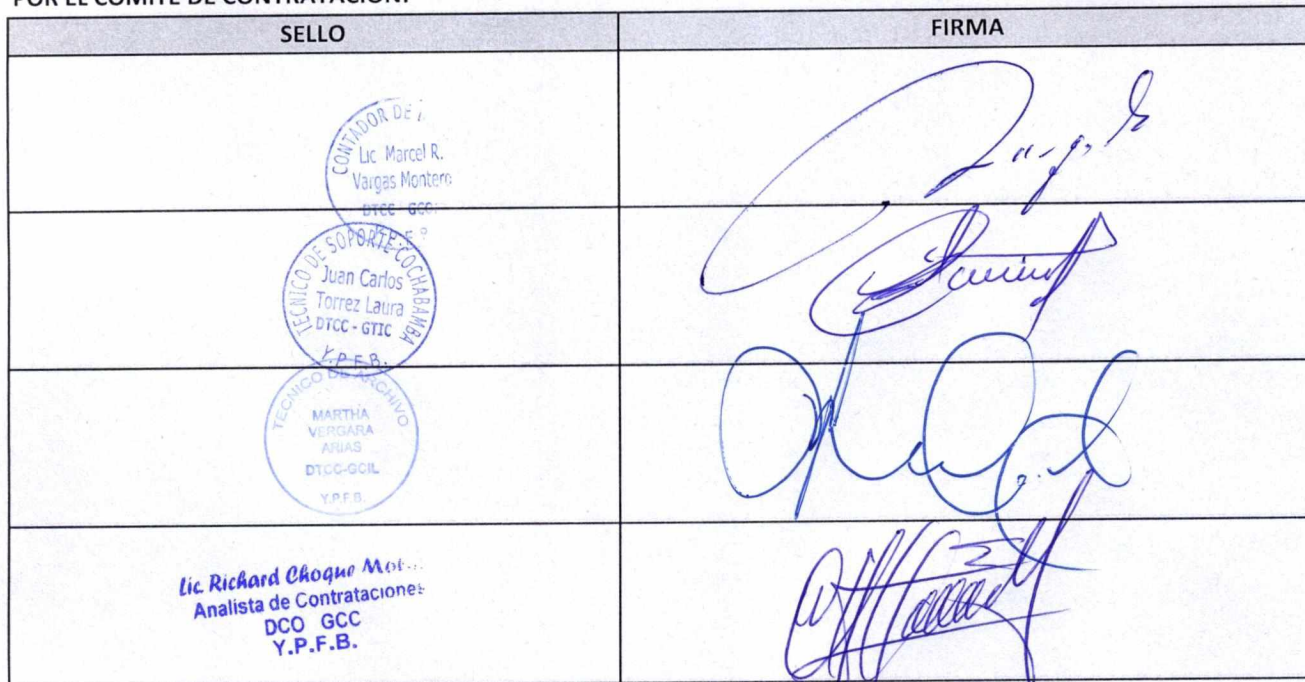 POR EL COMITÉ DE CONTRATACIÓN:
SELLO
FIRMA
CONTADOR DE
Lic Marcel R.
Vargas Montero
DTCC - GCC
TECNICO DE SOPORTE COCHABAMBA
Juan Carlos
Torrez Laura
DTCC - GTIC
Y.P.F.B.
TECNICO DE ARCHIVO
MARTHA
VERGARA
ARIAS
DTCC-GCIL
Y.P.F.B.
Lic. Richard Choque
Analista de Contrataciones
DCO GCC
Y.P.F.B.